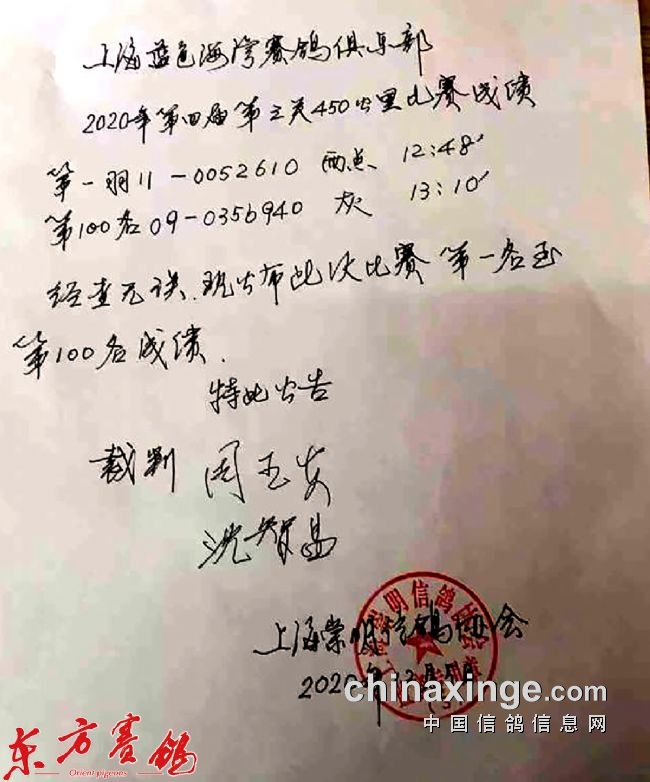 上海蓝色海湾赛鸽俱乐部
2020年第四届第三关450公里比赛成绩
第一羽11-0052610 雨点 12:48'
第100名09-0356940 灰 13:10'
经查无误.现公布此次比赛 第一名至
第100名成绩.
特此公告
裁判 周玉安
沈智昌
上海崇明信鸽协会
2020年12月
chinaxinge.com
中国信鸽信息网
东方赛鸽
Orient pigeons